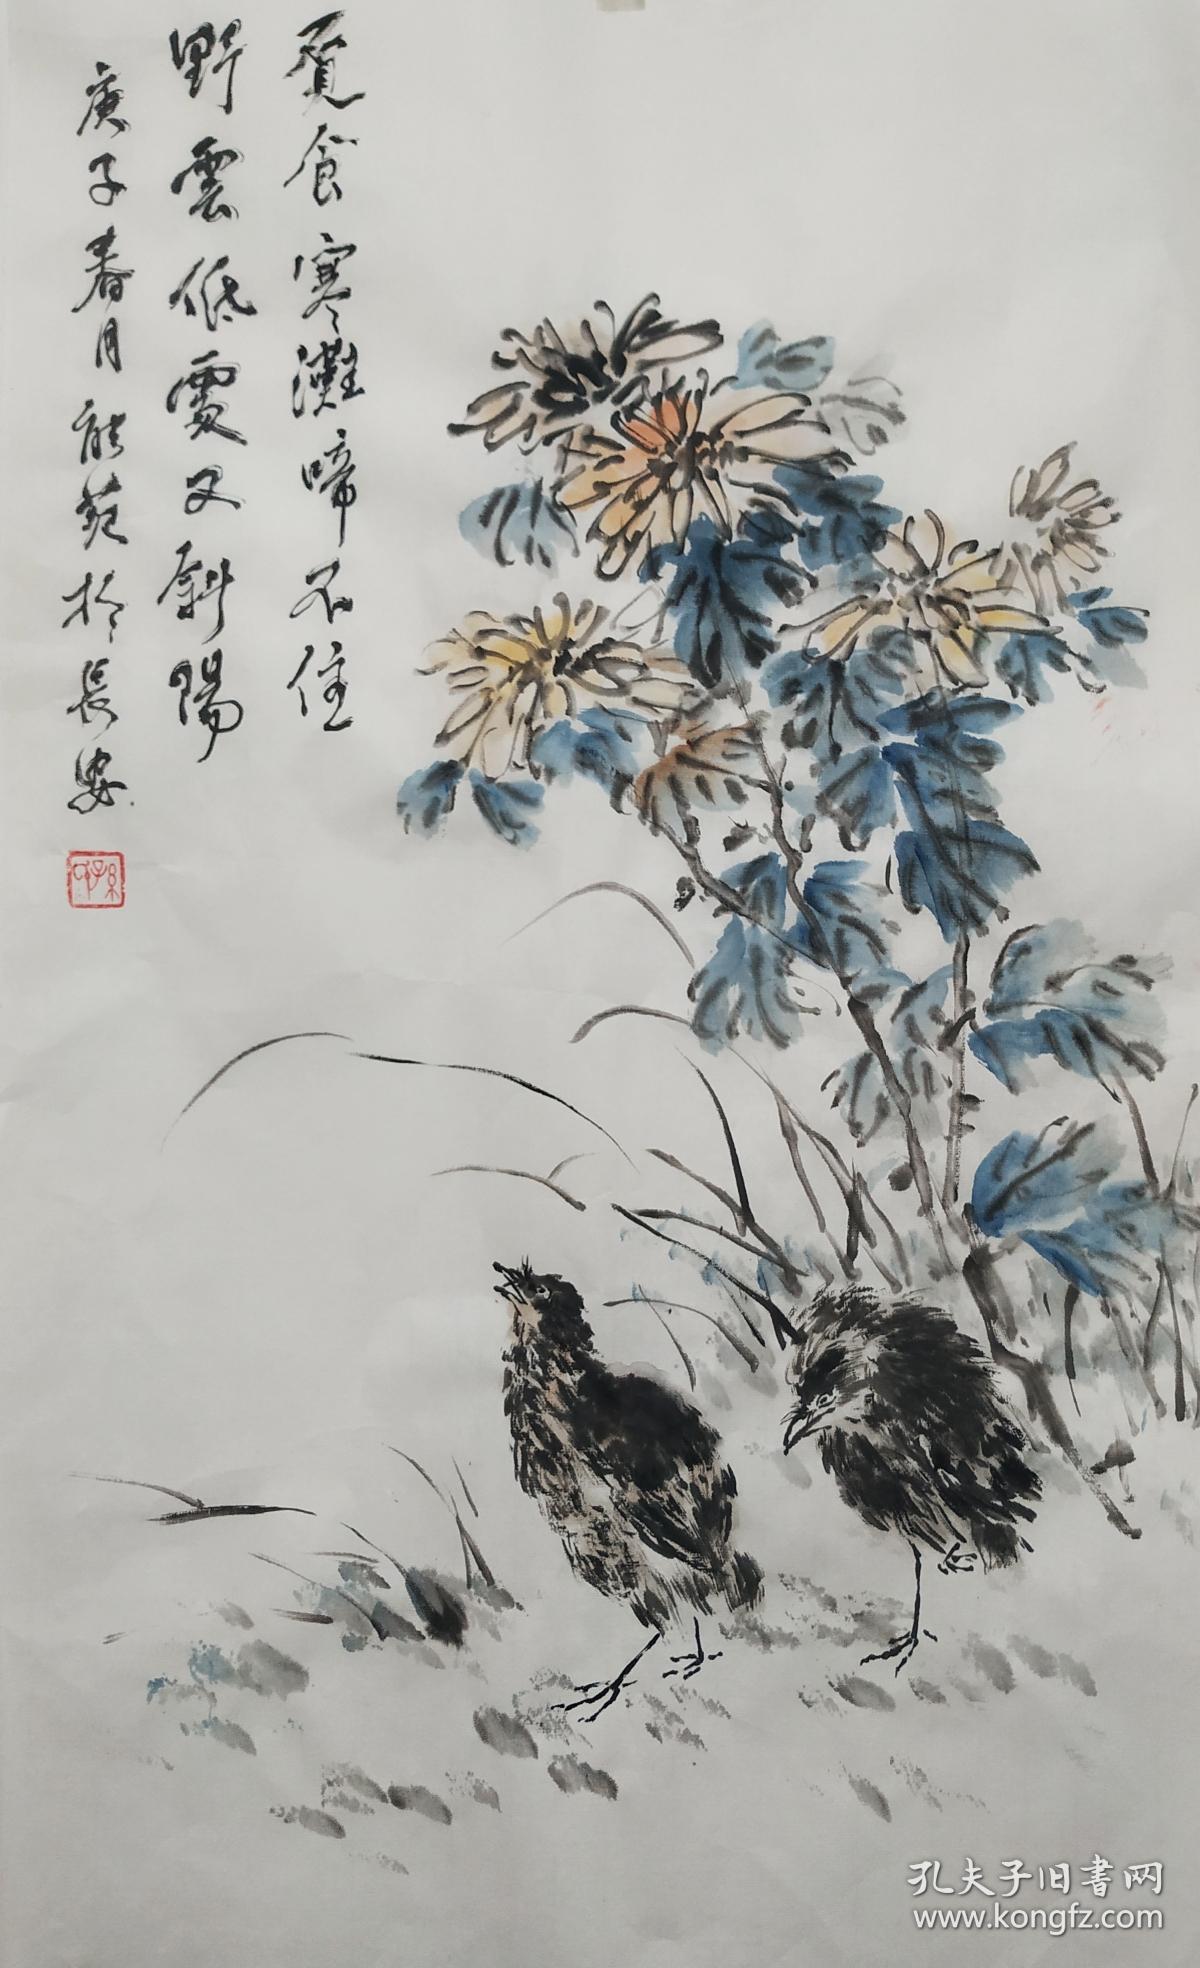 觅食寒灘啼不住
野雲低處又斜陽
庚子春月 苑於長安
孔夫子旧书网
www.kongfz.com